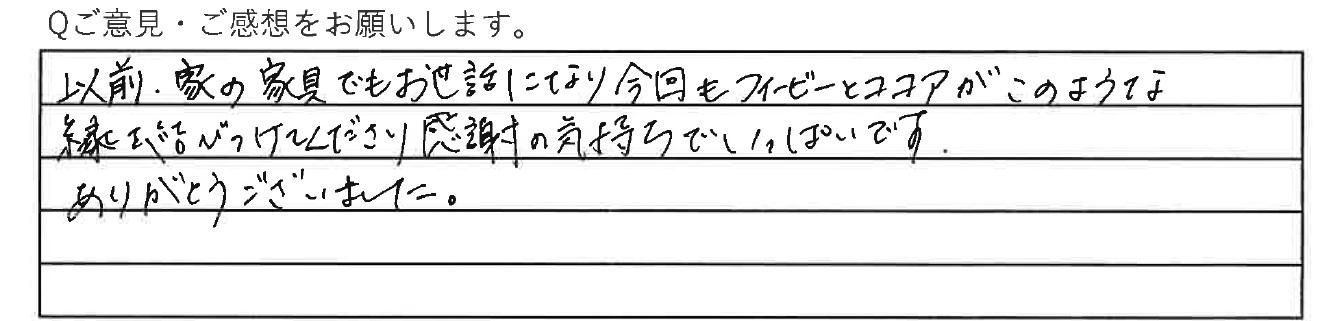 Qご意見・ご感想をお願いします。
以前、家の家具でもお世話になり今回もフィービーとココアがこのような
縁を結びつけてくださり感謝の気持ちでいっぱいです.
ありがとうございました。